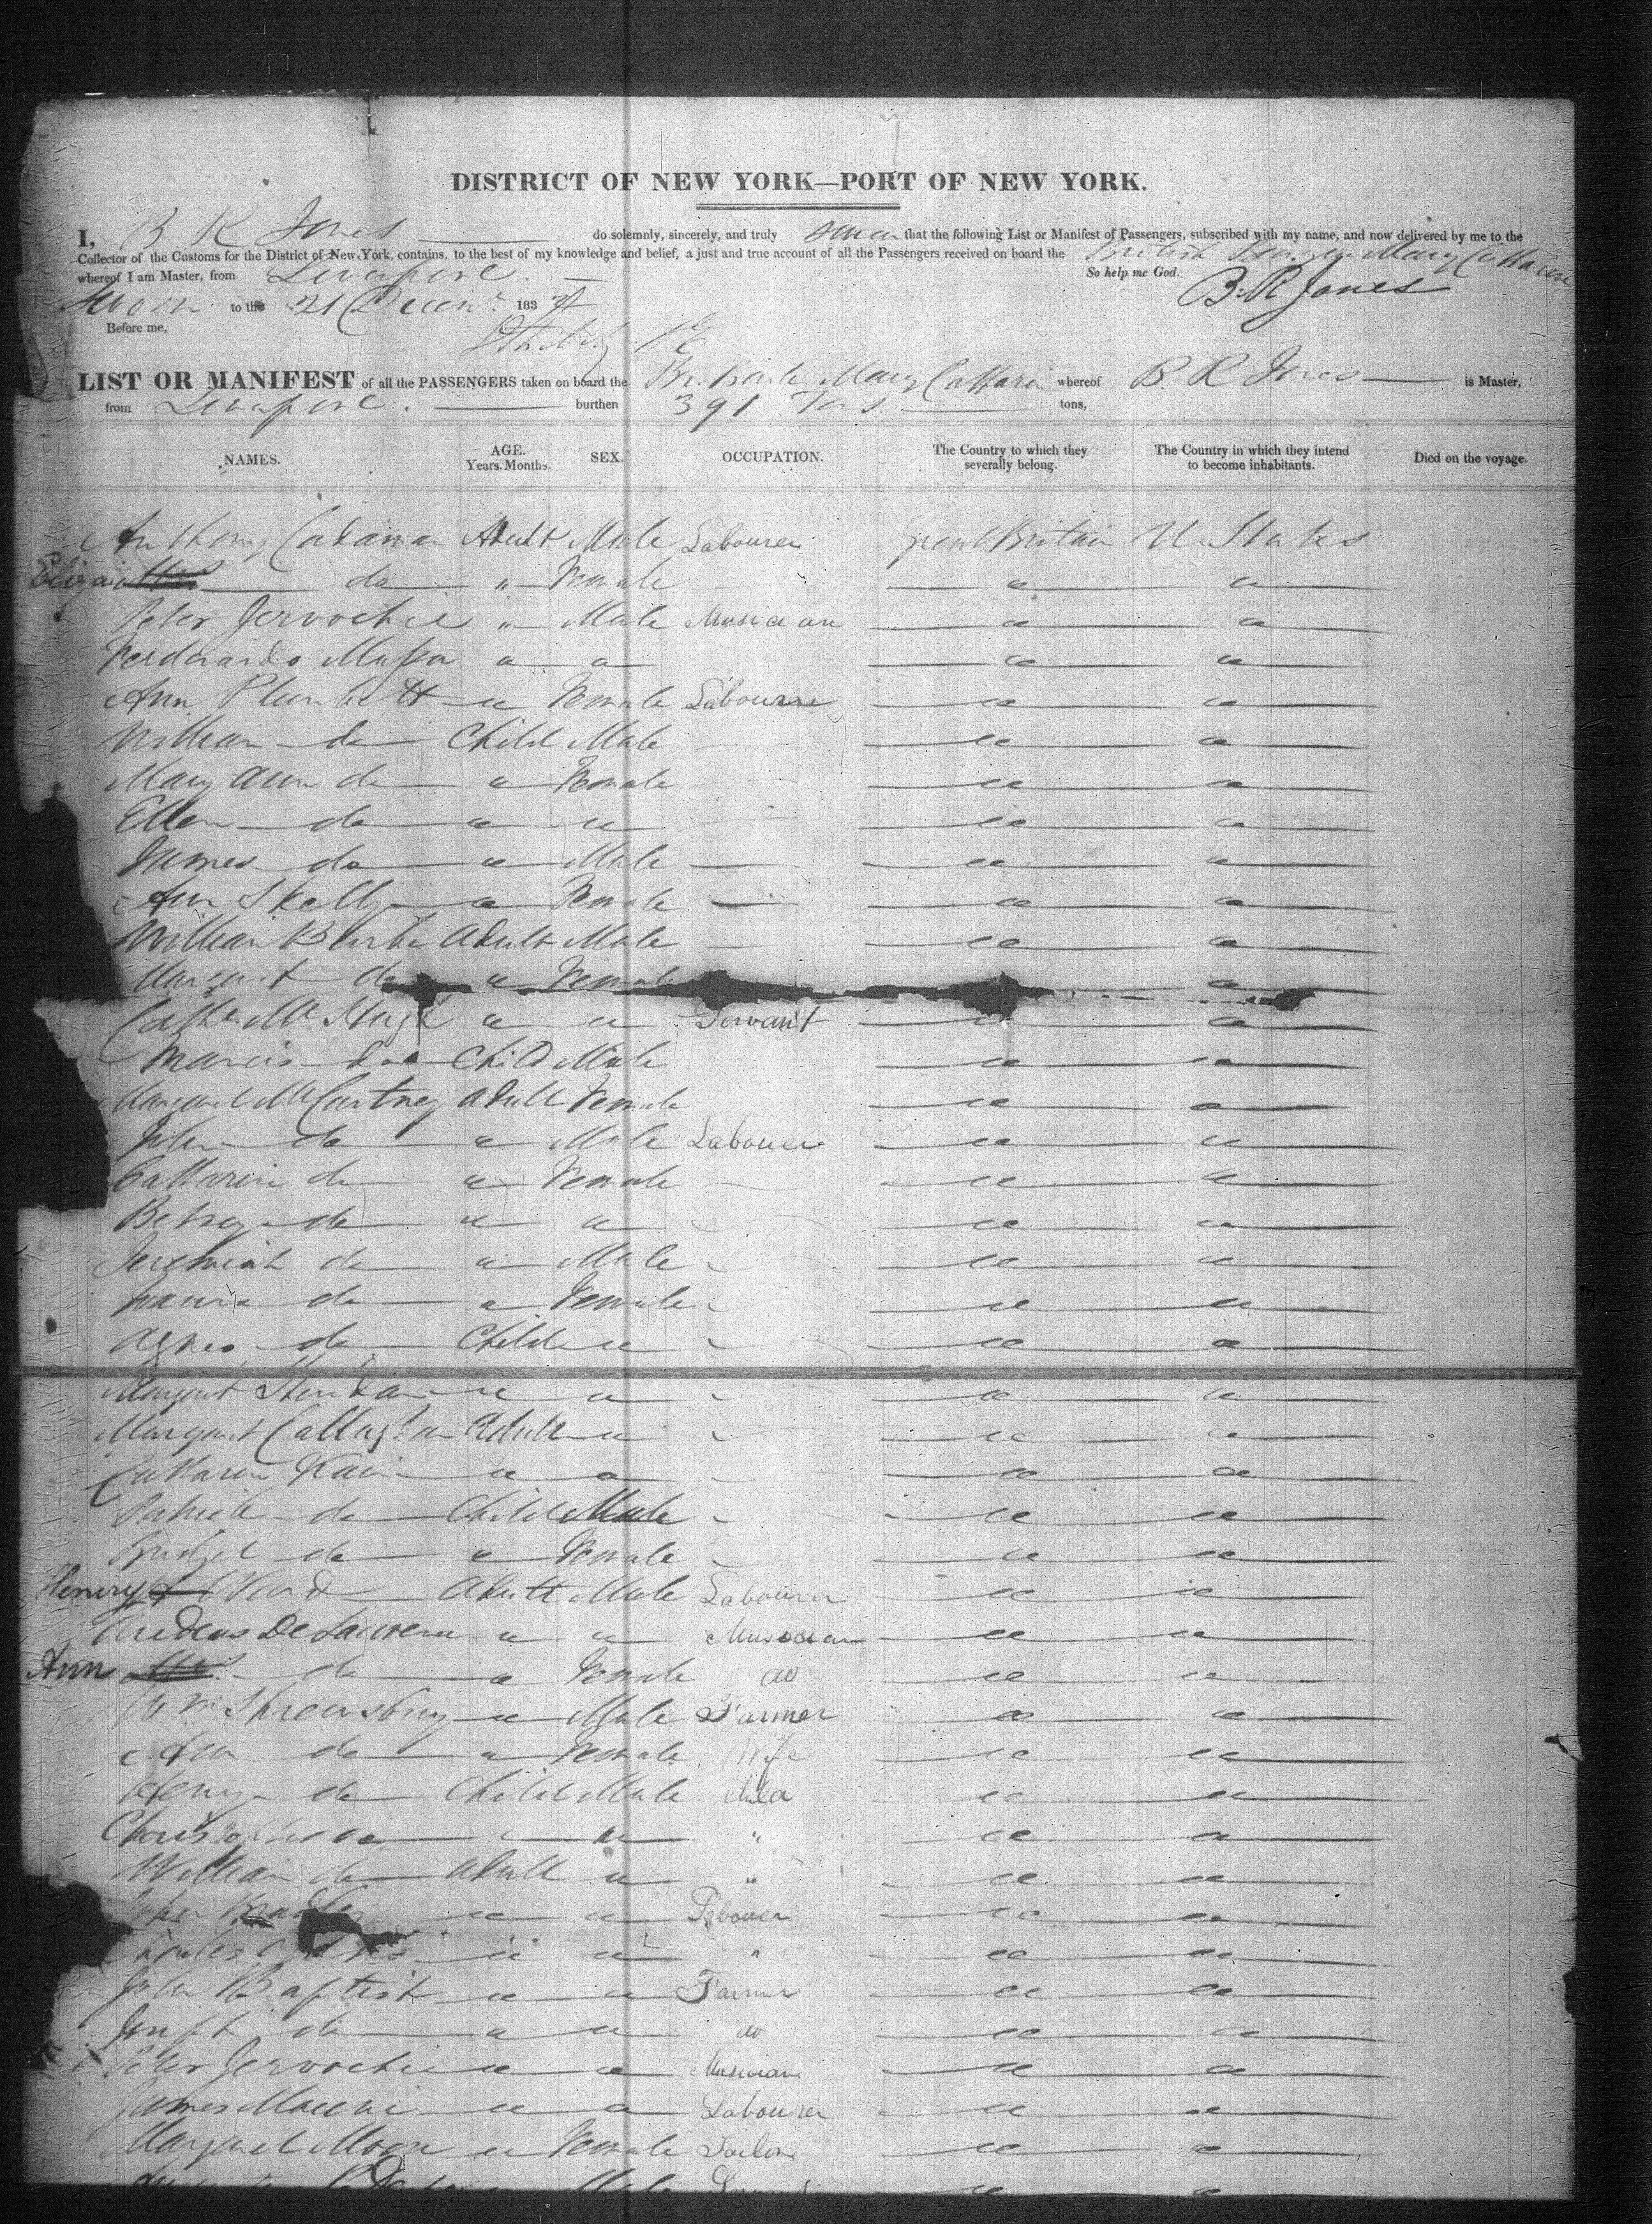 DISTRICT OF NEW YORK—PORT OF NEW YORK.
I, B R Jones do solemnly, sincerely, and truly swear that the following List or Manifest of Passengers, subscribed with my name, and now delivered by me to the
Collector of the Customs for the District of New York, contains, to the best of my knowledge and belief, a just and true account of all the Passengers received on board the British Mary Catharine
whereof I am Master, from Liverpool. So help me God.
Sworn to the 21 Decem 183 B. R Jones
Before me,
LIST OR MANIFEST of all the PASSENGERS taken on board the Br. Bark Mary Catharin whereof B. R Jones is Master,
from Liverpool. burthen 391 Tons. tons,
NAMES. AGE. Years. Months. SEX. OCCUPATION. The Country to which they severally belong. The Country in which they intend to become inhabitants. Died on the voyage.
Anthony Adult Male Labourer Great Britain U. States
Eliza do " Female " "
Peter Jervochie " Male Musician " "
Ferdinando Massa " " " "
Ann Plunkett " Female Labourer " "
William do Child Male " "
Mary Ann do " Female " "
Ellen do " " " "
James do " Male " "
Ann Skelly " Female " "
William Burke Adult Male " "
Margaret do " Female "
Cathe McHugh " " Servant " "
Francis do Child Male " "
Margaret McCartney Adult Female " "
John do " Male Labourer " "
Catharin do " Female " "
Betsey do " " " "
Jeremiah do " Male " "
do " Female " "
Agnes do Child " " "
Margaret Sheridan " " " "
Margaret Callaghan Adult " " "
Catharin Kain " " " "
Patrick do Child Male " "
Bridget do " Female " "
Henry Ward Adult Male Labourer " "
" " Musician " "
Ann do " Female do " "
Wm Shrewsbury " Male Farmer " "
Ann do " Female Wife " "
Henry do Child Male Child " "
Christopher do " " " " "
William do Adult " " " "
John Bradley " " Labouer " "
Charles " " " " "
John Baptist " " Farmer " "
Joseph do " " do " "
Peter Jervochie " " Musician " "
James " " Labourer " "
Margaret Moore " Female " "
" Male " "